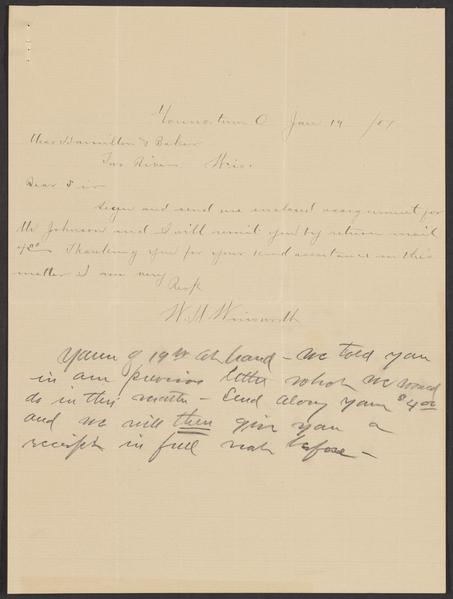 Youngstown O Jan 19 /07
Hamilton & Baker
Two Rivers Wis.
Dear Sir
Sign and send me enclosed assignment for
Mr Johnson and I will remit you by return mail
4.00 Thanking you for your kind assistance in this
matter I am very
Resp
W. H.
Yours of 19th at hand - we told you
in our previous letter what we would
do in this matter - Send along your $4.00
and we will then give you a
receipt in full not before -